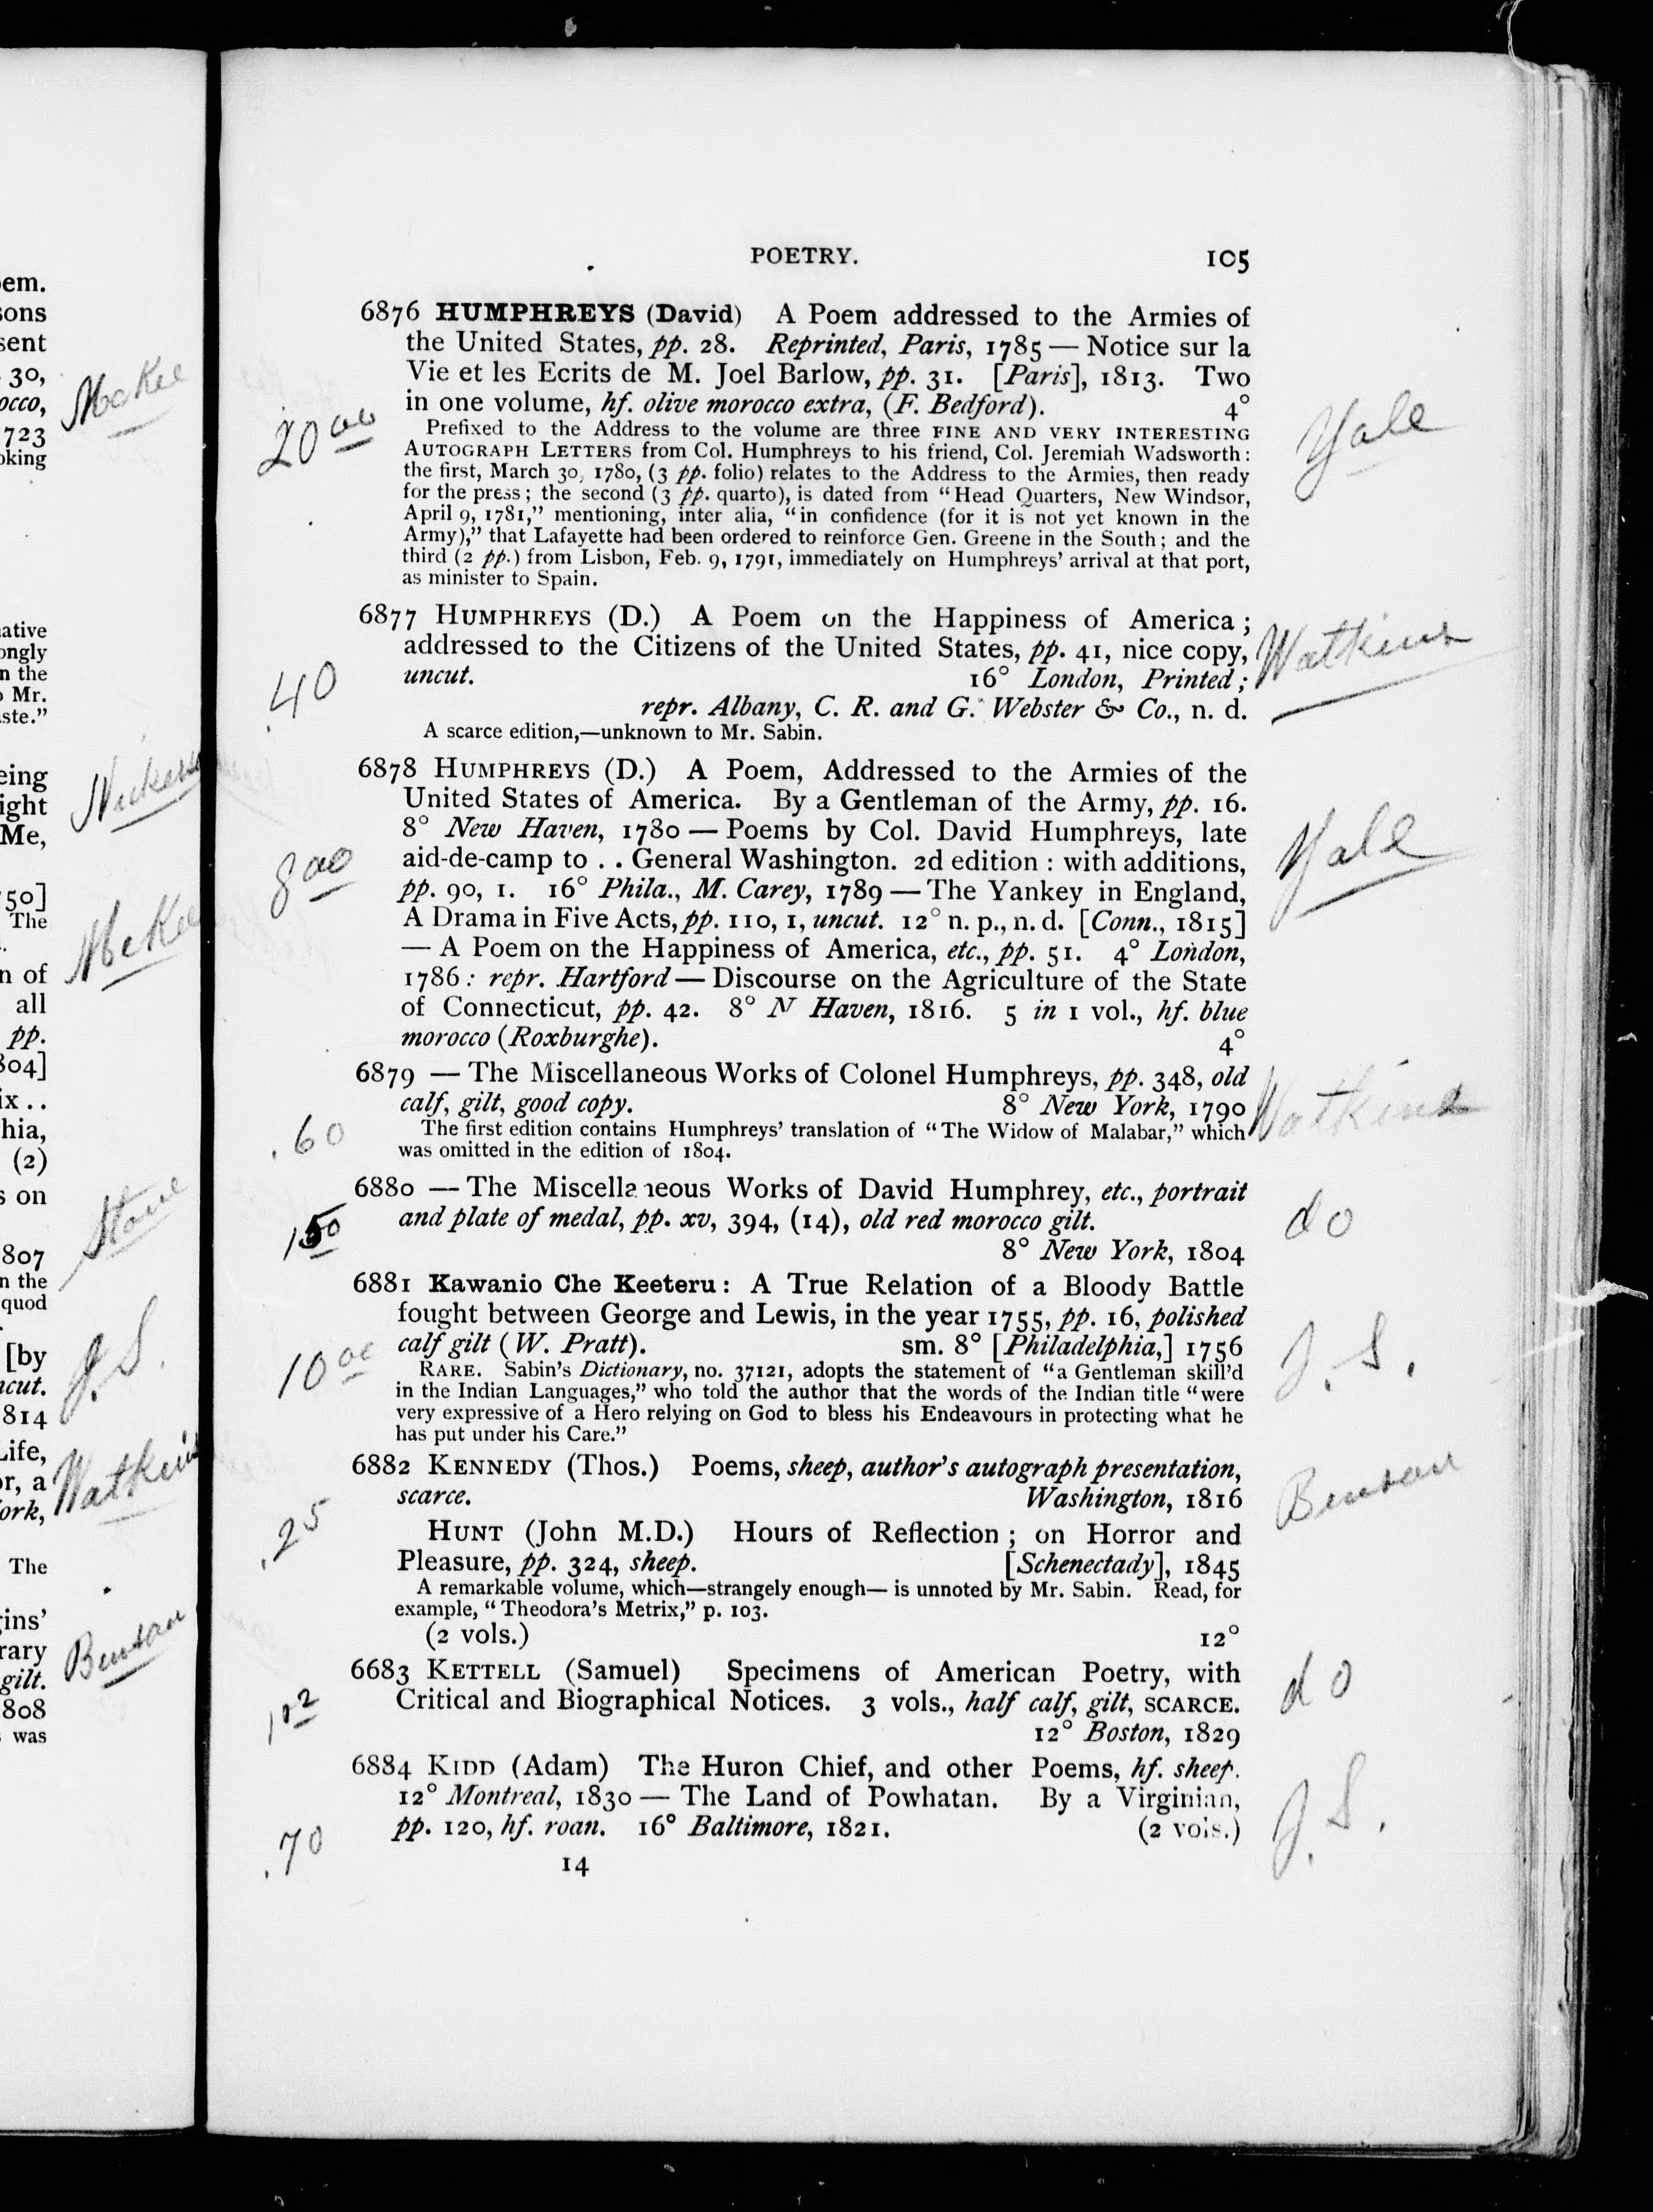 em.
sons
sent
30,
occo,
723
oking
ative
ongly
n the
Mr.
ste."
eing
ight
Me,
50]
The
n of
all
pp.
804]
ix . .
hia,
(2)
s on
807
n the
quod
[by
ncut.
814
Life,
or, a
ork,
The
gins'
rary
gilt.
808
was
McKee
McKee
Stone
J. S.
Watkins
Benson
POETRY. 105
6876 HUMPHREYS (David) A Poem addressed to the Armies of
the United States, pp. 28. Reprinted, Paris, 1785 — Notice sur la
Vie et les Ecrits de M. Joel Barlow, pp. 31. [Paris], 1813. Two
in one volume, hf. olive morocco extra, (F. Bedford). 4°
20 00
Yale
Prefixed to the Address to the volume are three FINE AND VERY INTERESTING
AUTOGRAPH LETTERS from Col. Humphreys to his friend, Col. Jeremiah Wadsworth:
the first, March 30, 1780, (3 pp. folio) relates to the Address to the Armies, then ready
for the press; the second (3 pp. quarto), is dated from "Head Quarters, New Windsor,
April 9, 1781," mentioning, inter alia, "in confidence (for it is not yet known in the
Army)," that Lafayette had been ordered to reinforce Gen. Greene in the South; and the
third (2 pp.) from Lisbon, Feb. 9, 1791, immediately on Humphreys' arrival at that port,
as minister to Spain.
6877 HUMPHREYS (D.) A Poem on the Happiness of America;
addressed to the Citizens of the United States, pp. 41, nice copy,
uncut. 16° London, Printed;
repr. Albany, C. R. and G. Webster & Co., n. d.
.40
Watkins
A scarce edition,—unknown to Mr. Sabin.
6878 HUMPHREYS (D.) A Poem, Addressed to the Armies of the
United States of America. By a Gentleman of the Army, pp. 16.
8° New Haven, 1780 — Poems by Col. David Humphreys, late
aid-de-camp to . . General Washington. 2d edition : with additions,
pp. 90, 1. 16° Phila., M. Carey, 1789 — The Yankey in England,
A Drama in Five Acts, pp. 110, 1, uncut. 12° n. p., n. d. [Conn., 1815]
— A Poem on the Happiness of America, etc., pp. 51. 4° London,
1786 : repr. Hartford — Discourse on the Agriculture of the State
of Connecticut, pp. 42. 8° N Haven, 1816. 5 in 1 vol., hf. blue
morocco (Roxburghe). 4°
8 00
Yale
6879 — The Miscellaneous Works of Colonel Humphreys, pp. 348, old
calf, gilt, good copy. 8° New York, 1790
The first edition contains Humphreys' translation of "The Widow of Malabar," which
was omitted in the edition of 1804.
.60
Watkins
6880 — The Miscellaneous Works of David Humphrey, etc., portrait
and plate of medal, pp. xv, 394, (14), old red morocco gilt.
8° New York, 1804
1 50
do
6881 Kawanio Che Keeteru: A True Relation of a Bloody Battle
fought between George and Lewis, in the year 1755, pp. 16, polished
calf gilt (W. Pratt). sm. 8° [Philadelphia,] 1756
10 00
J. S.
RARE. Sabin's Dictionary, no. 37121, adopts the statement of "a Gentleman skill'd
in the Indian Languages," who told the author that the words of the Indian title "were
very expressive of a Hero relying on God to bless his Endeavours in protecting what he
has put under his Care."
6882 KENNEDY (Thos.) Poems, sheep, author's autograph presentation,
scarce. Washington, 1816
.25
Benson
HUNT (John M.D.) Hours of Reflection ; on Horror and
Pleasure, pp. 324, sheep. [Schenectady], 1845
A remarkable volume, which—strangely enough— is unnoted by Mr. Sabin. Read, for
example, "Theodora's Metrix," p. 103.
(2 vols.) 12°
6683 KETTELL (Samuel) Specimens of American Poetry, with
Critical and Biographical Notices. 3 vols., half calf, gilt, SCARCE.
12° Boston, 1829
do
6884 KIDD (Adam) The Huron Chief, and other Poems, hf. sheep.
12° Montreal, 1830 — The Land of Powhatan. By a Virginian,
pp. 120, hf. roan. 16° Baltimore, 1821. (2 vols.)
.70
J. S.
14